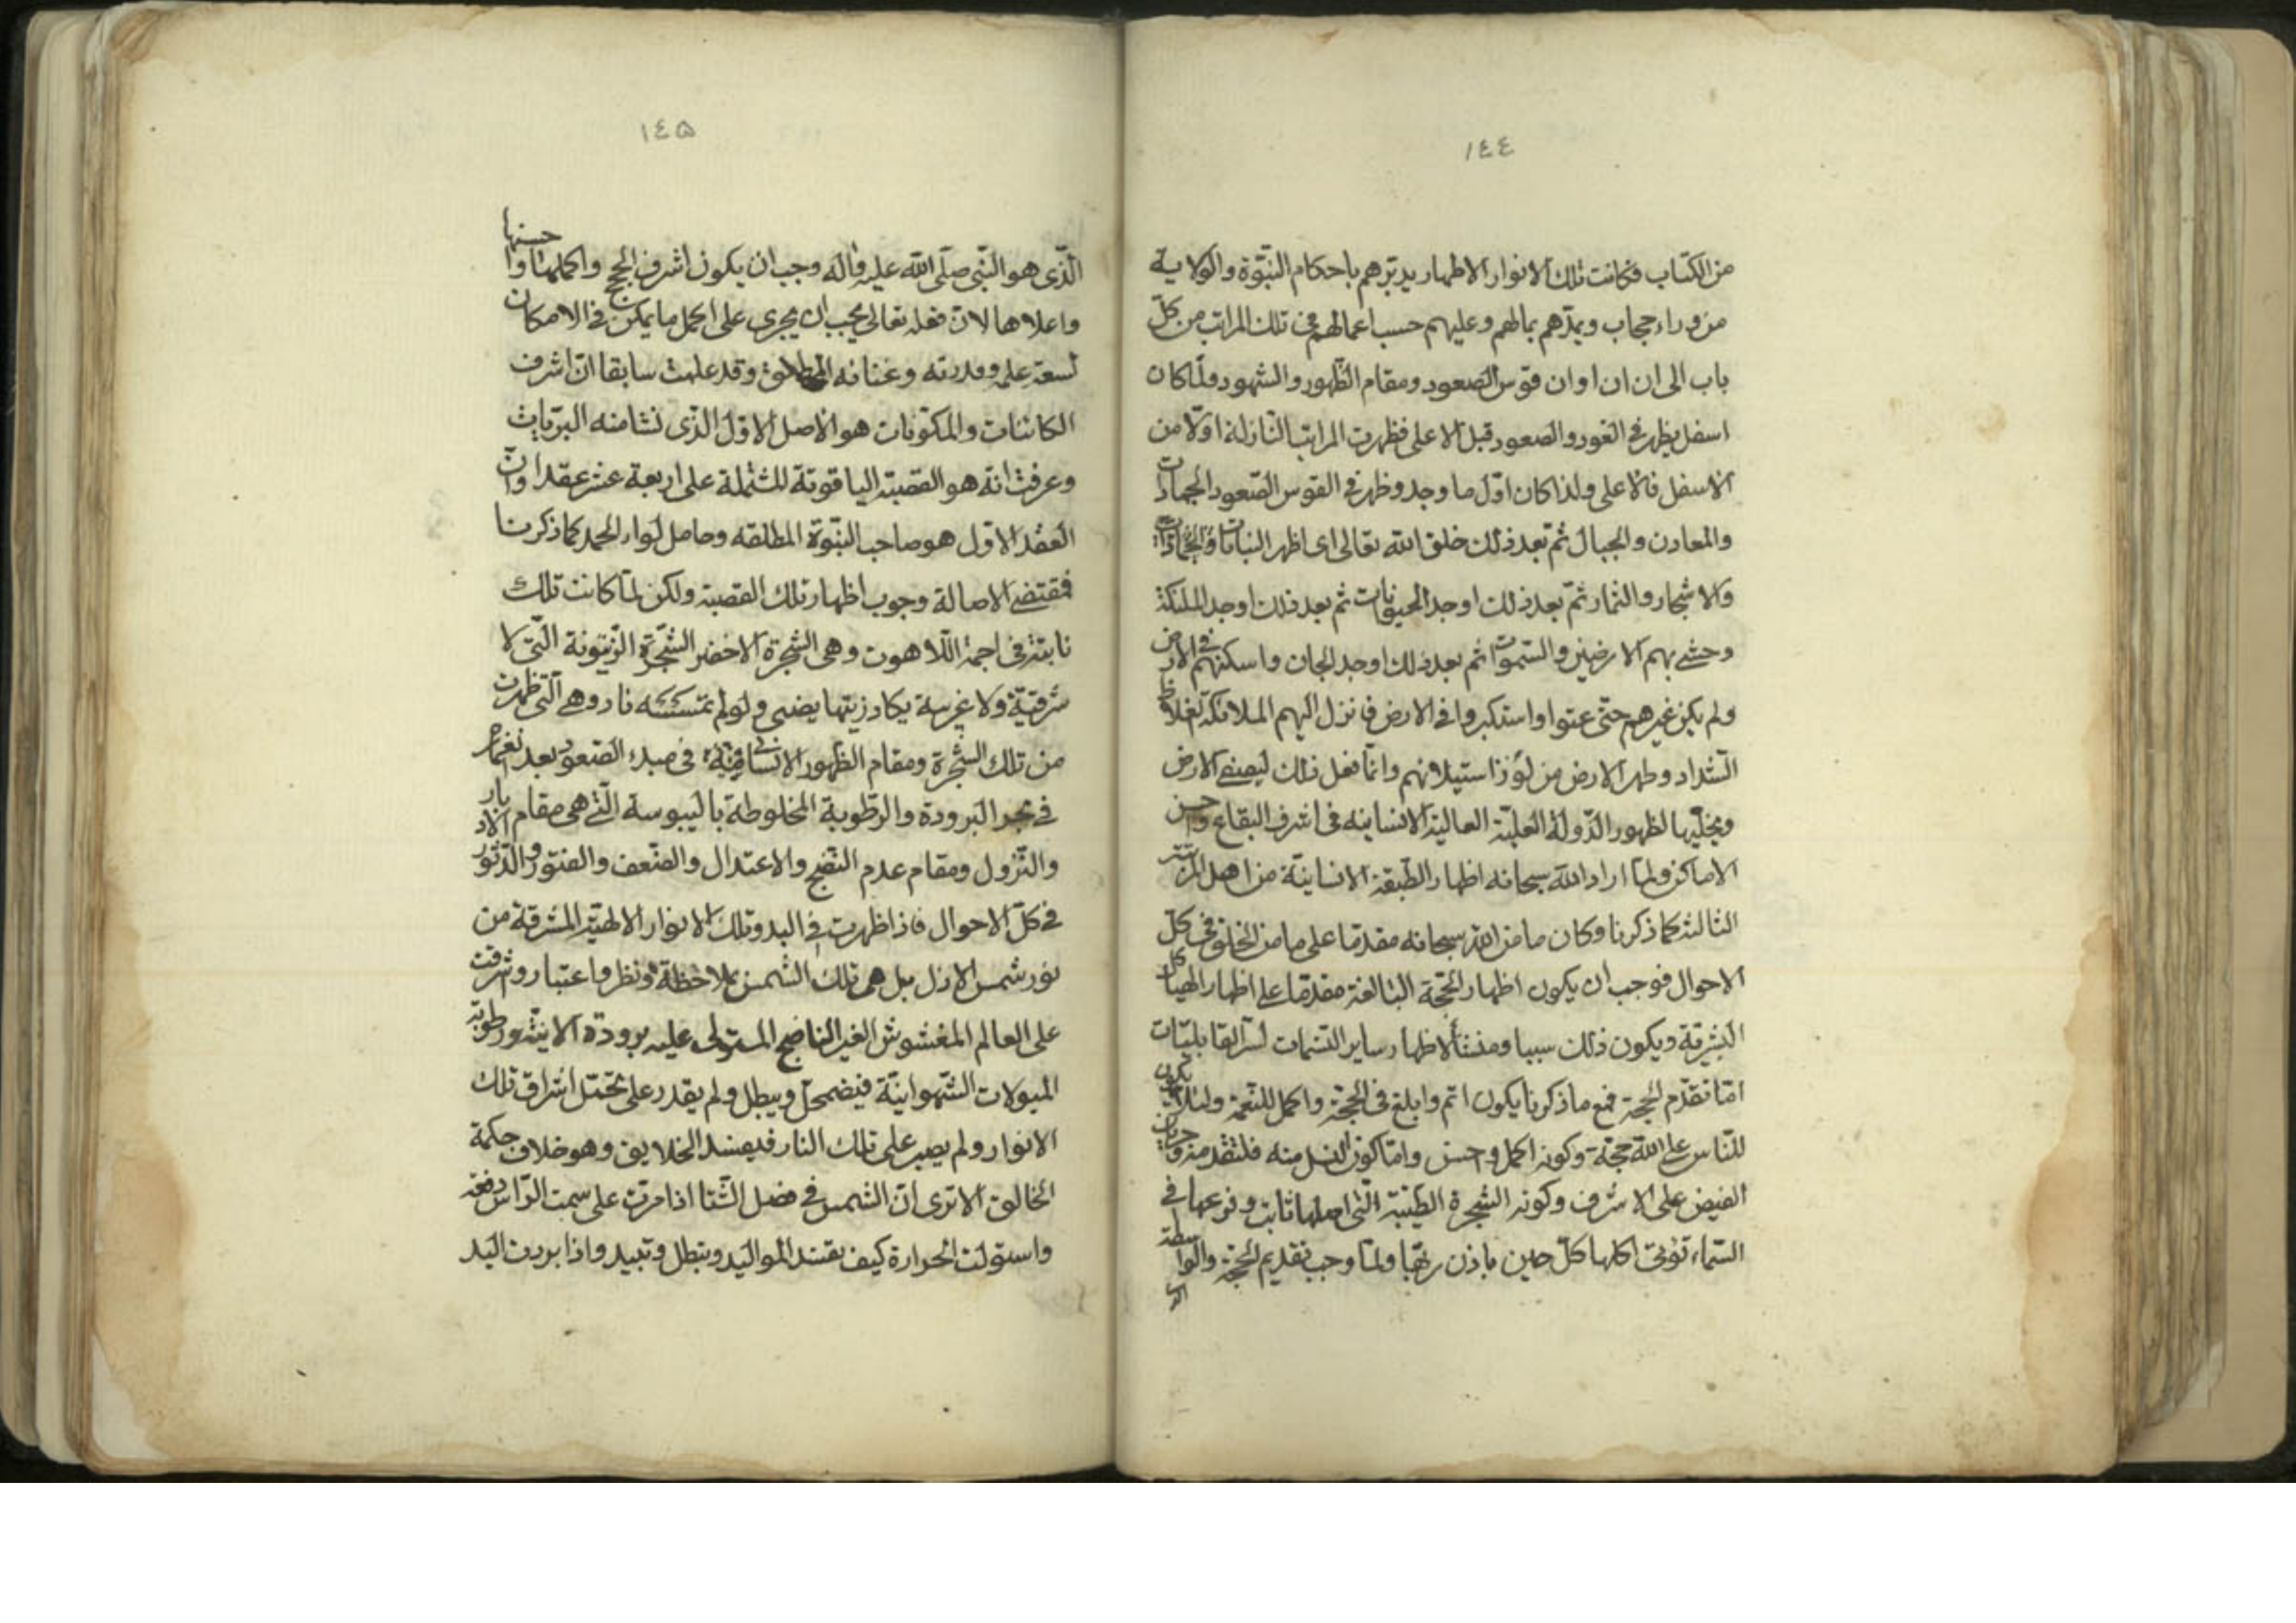 ١٤٤
من الكتاب فكانت تلك الانوار الاطهار يدبّرهم باحكام النبّوة والولاية
من وراء حجاب ويمدّهم بمالهم وعليهم حسب اعمالهم في تلك المراتب من كلّ
باب الى ان ان اوان قوس الصعود ومقام الظّهور والشهود ولمّا كان
اسفل يظهر في الغور والصعود قبل الاعلى فظهرت المراتب النّازلة اوّلا من
الاسفل فالاعلى ولذا كان اوّل ما وجد وظهر في القوس الصّعود الجمادات
والمعادن والجبال ثمّ بعد ذلك خلق الله تعالى اى اظهر النباتات
والاشجار والثمار ثمّ بعد ذلك اوجد الحيوانات ثم بعد ذلك اوجد الملئكة
وحشى بهم الارضين والسّموات ثم بعد ذلك اوجد الجان واسكنهم في الارض
ولم يكن غيرهم حتّى عتوا واستكبروا في الارض فانزل اليهم الملائكة الغلاظ
الشّداد وطهر الارض من لوّث استيلائهم وانّما فعل ذلك ليصفى الارض
ويخلّيها لظهور الدّولة العليّة العالية الانسانيه فى اشرف البقاع واحسن
الاماكن ولمّا اراد الله سبحانه اظهار الطّبقة الانسانيّة من اهل المرتبة
الثالثة كما ذكرنا وكان ما من الله سبحانه مقدما على ما من الخلق في كلّ
الاحوال فوجب ان يكون اظهار الحجّة البالغة مقدّما على اظهار الهياكل
البشريّة ويكون ذلك سببا ومنشأ لاظهار ساير النسمات لسرّ القابليّات
امّا تقدّم الحجة فمع ما ذكرنا يكون اتم وابلغ فى الحجّة واكمل للنّعمة ولئلا يكون
للنّاس على الله حجّة وكونه اكمل واحسن وامّا كون النسل منه فلتقدمه وجريان
الفيض على الاشرف وكونه الشجرة الطيّبة الّتى اصلها ثابت وفرعها فى
السّماء تؤتى اكلها كلّ حين باذن ربّها ولمّا وجب تقديم الحجّة والواسطة
١٤۵
الّذى هو النّبى صلّى الله عليه وآله وجب ان يكون اشرف الحجج واكملها واحسنها
واعلاها لانّ فعله تعالى يجب ان يجرى على اكمل ما يمكن في الامكان
لسعة علمه وقدرته وغنائه المطلق وقد علمت سابقا انّ اشرف
الكائنات والمكوّنات هو الاصل الاوّل الذّى نشا منه البريّات
وعرفت انّه هو القصبة الياقوتة المشتملة على اربعة عشر عقدا وانّ
العقد الاوّل هو صاحب النبّوة المطلقه وحامل لواء الحمد كما ذكرنا
فقتضى الاصالة وجوب اظهار تلك القصبة ولكن لمّا كانت تلك
نابتة فى اجمة اللّاهوت وهى الشجرة الاخضر الشّجرة الزّيتونة الّتى لا
شرقيّة ولا غربية يكاد زيتها يضىى ولو لم تمسسه نار وهى الّتى ظهرت
من تلك الشّجرة ومقام الظهور الانسانية فى مبدء الصّعود بعد انغماره
في بحر البرودة والرّطوبة المخلوطة باليبوسة الّتى هى مقام الادبار
والنّزول ومقام عدم النّضج والاعتدال والضّعف والفتور والدّثور
في كلّ الاحوال فاذا ظهرت في البدو تلك الانوار الالهيّة المشرقة من
نور شمس الازل بل هى تلك الشّمس بملاحظة ونظر واعتبار وشرقت
على العالم المغشوش الغير النّاضج المستولى عليه برودة الانيّة ورطوبة
الميولات الشّهوانيّة فيضمحلّ ويبطل ولم يقدر على تحمّل اشراق تلك
الانوار ولم يصبر على تلك النار فيفسد الخلايق وهو خلاف حكمة
الخالق الا ترى انّ الشمس في فصل الشّتا اذا مرّت على سمت الرّاس دفعة
واستولت الحرارة كيف تفسد المواليد ويبطل وتبيد واذا بردت اليد